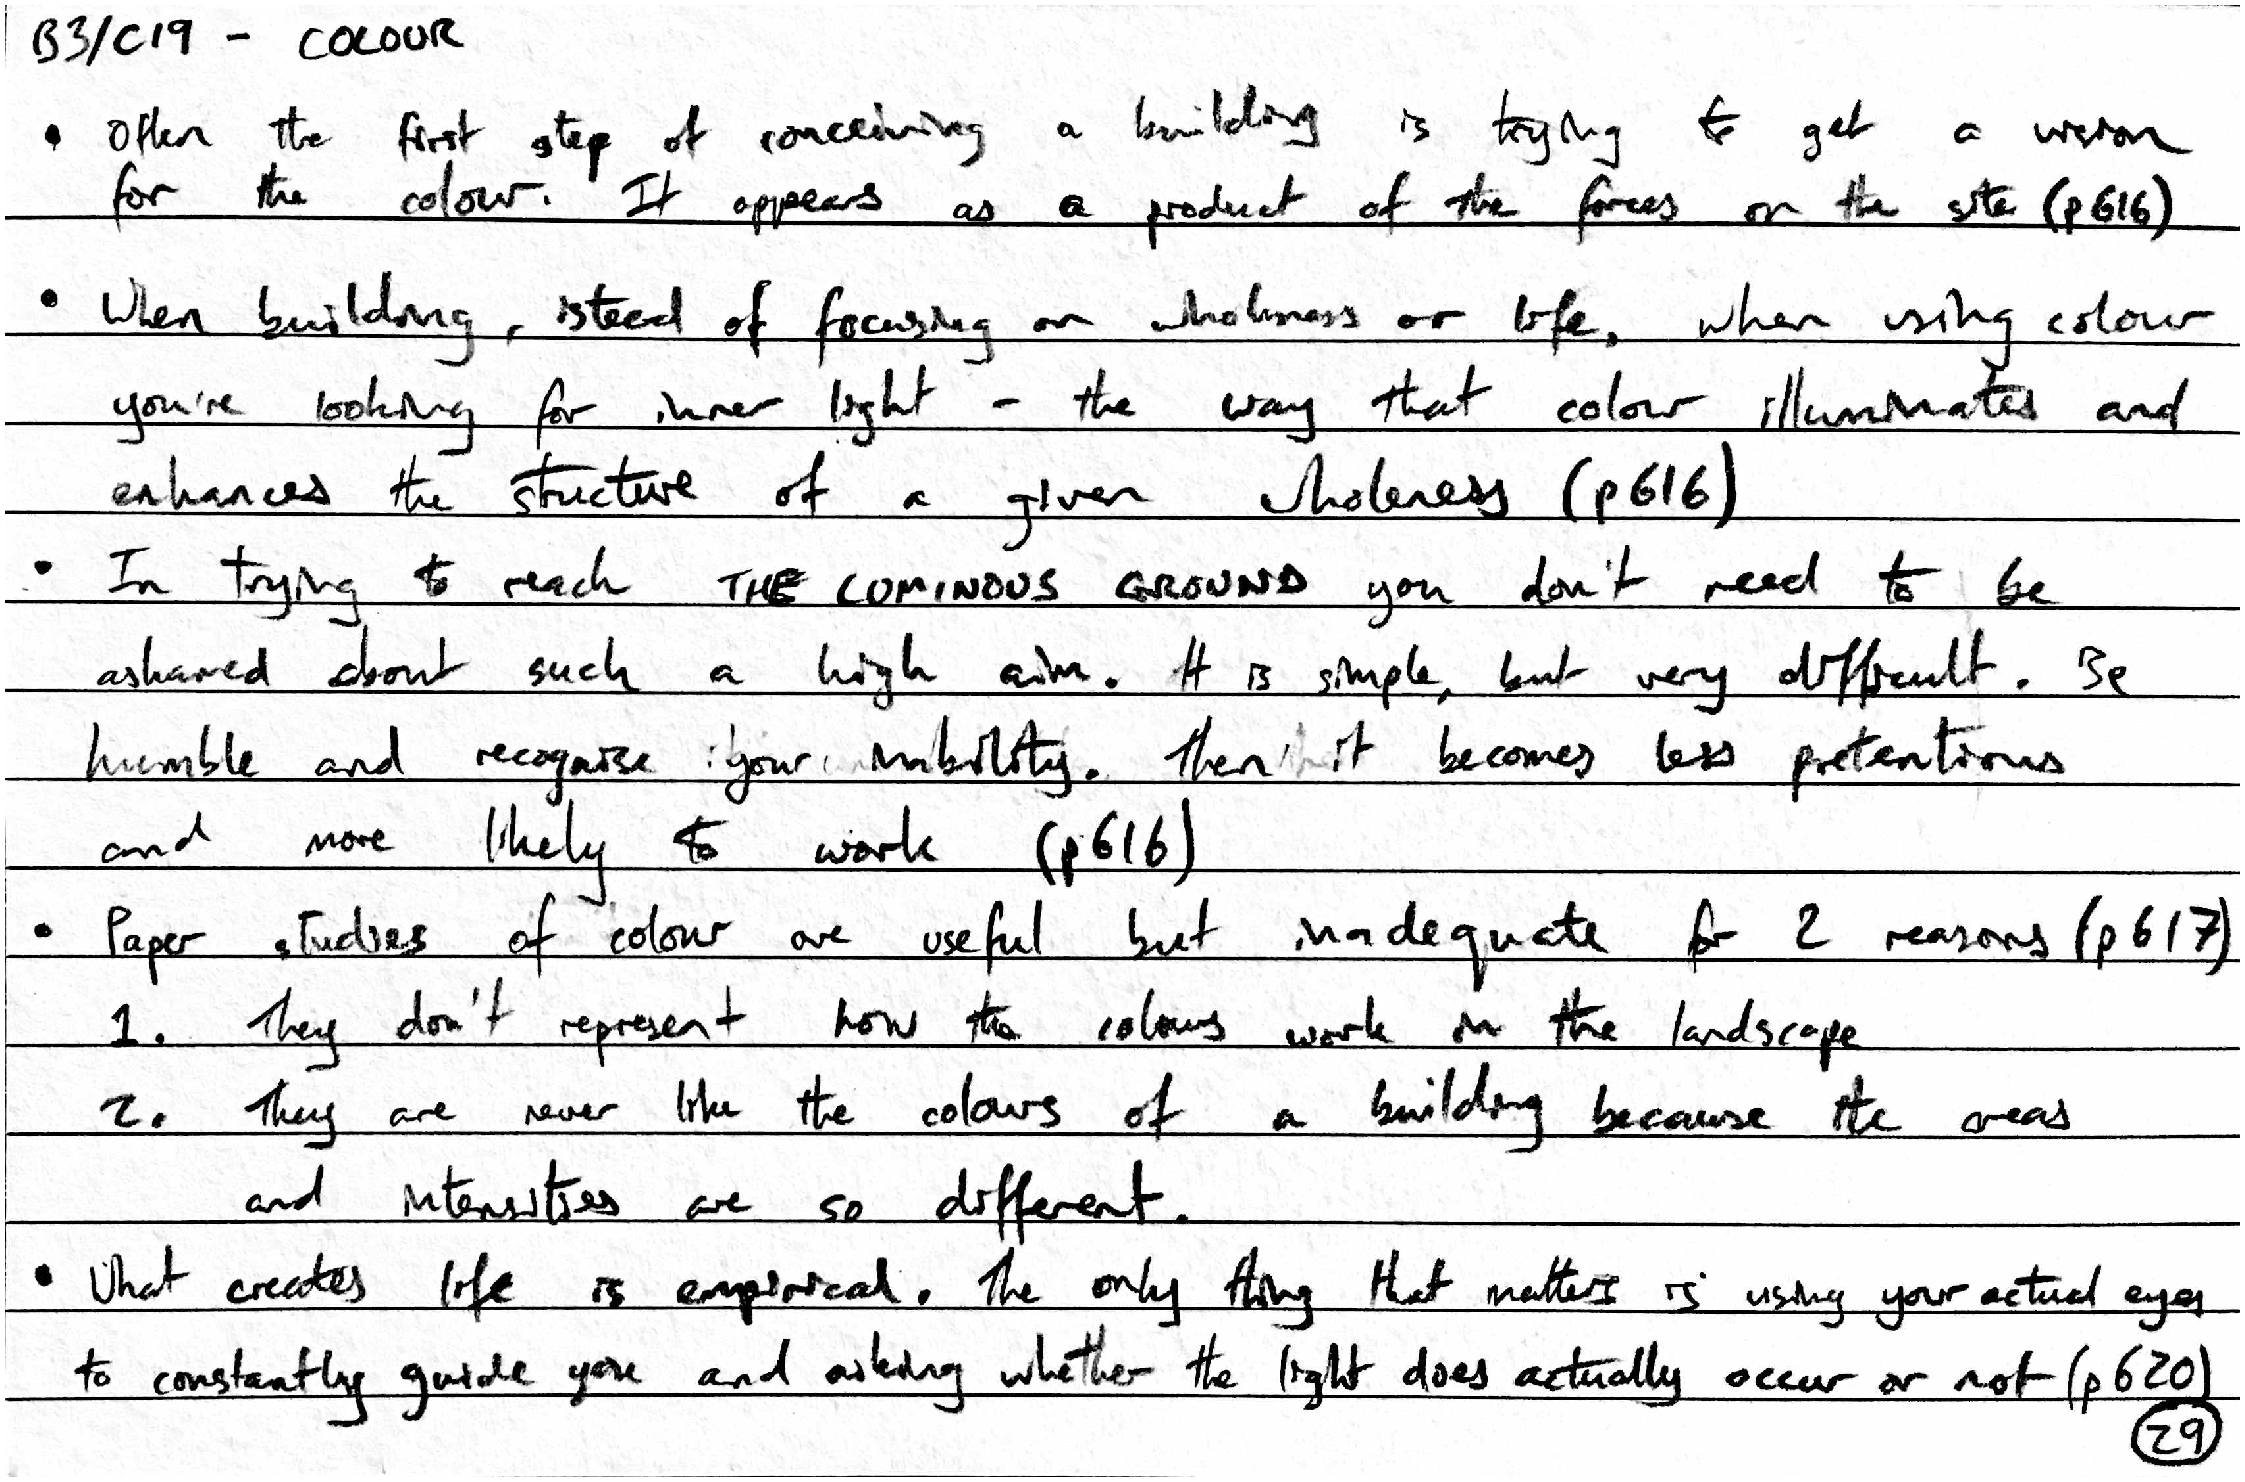 B3/C19 - COLOUR
• Often the first step of conceiving a building is trying to get a vision
for the colour. It appears as a product of the forces on the site (p616)
• When building, istead of focusing on wholeness or life, when using colour
you're looking for inner light - the way that colour illuminates and
enhances the structure of a given wholeness (p616)
• In trying to reach THE LUMINOUS GROUND you don't need to be
ashamed about such a high aim. It is simple, but very difficult. Be
humble and recognise your inability. Then it becomes less pretentious
and more likely to work (p616)
• Paper studies of colour are useful but inadequate for 2 reasons (p617)
1. They don't represent how the colours work in the landscape
2. They are never like the colours of a building because the areas
and intensities are so different.
• What creates life is empirical. The only thing that matters is using your actual eyes
to constantly guide you and asking whether the light does actually occur or not (p620)
29